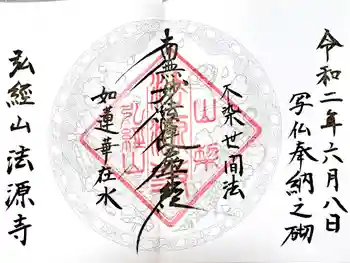 令和二年六月八日
写仏奉納之砌
不染世間法
南無妙法蓮華経
如蓮華在水
弘經山法源寺